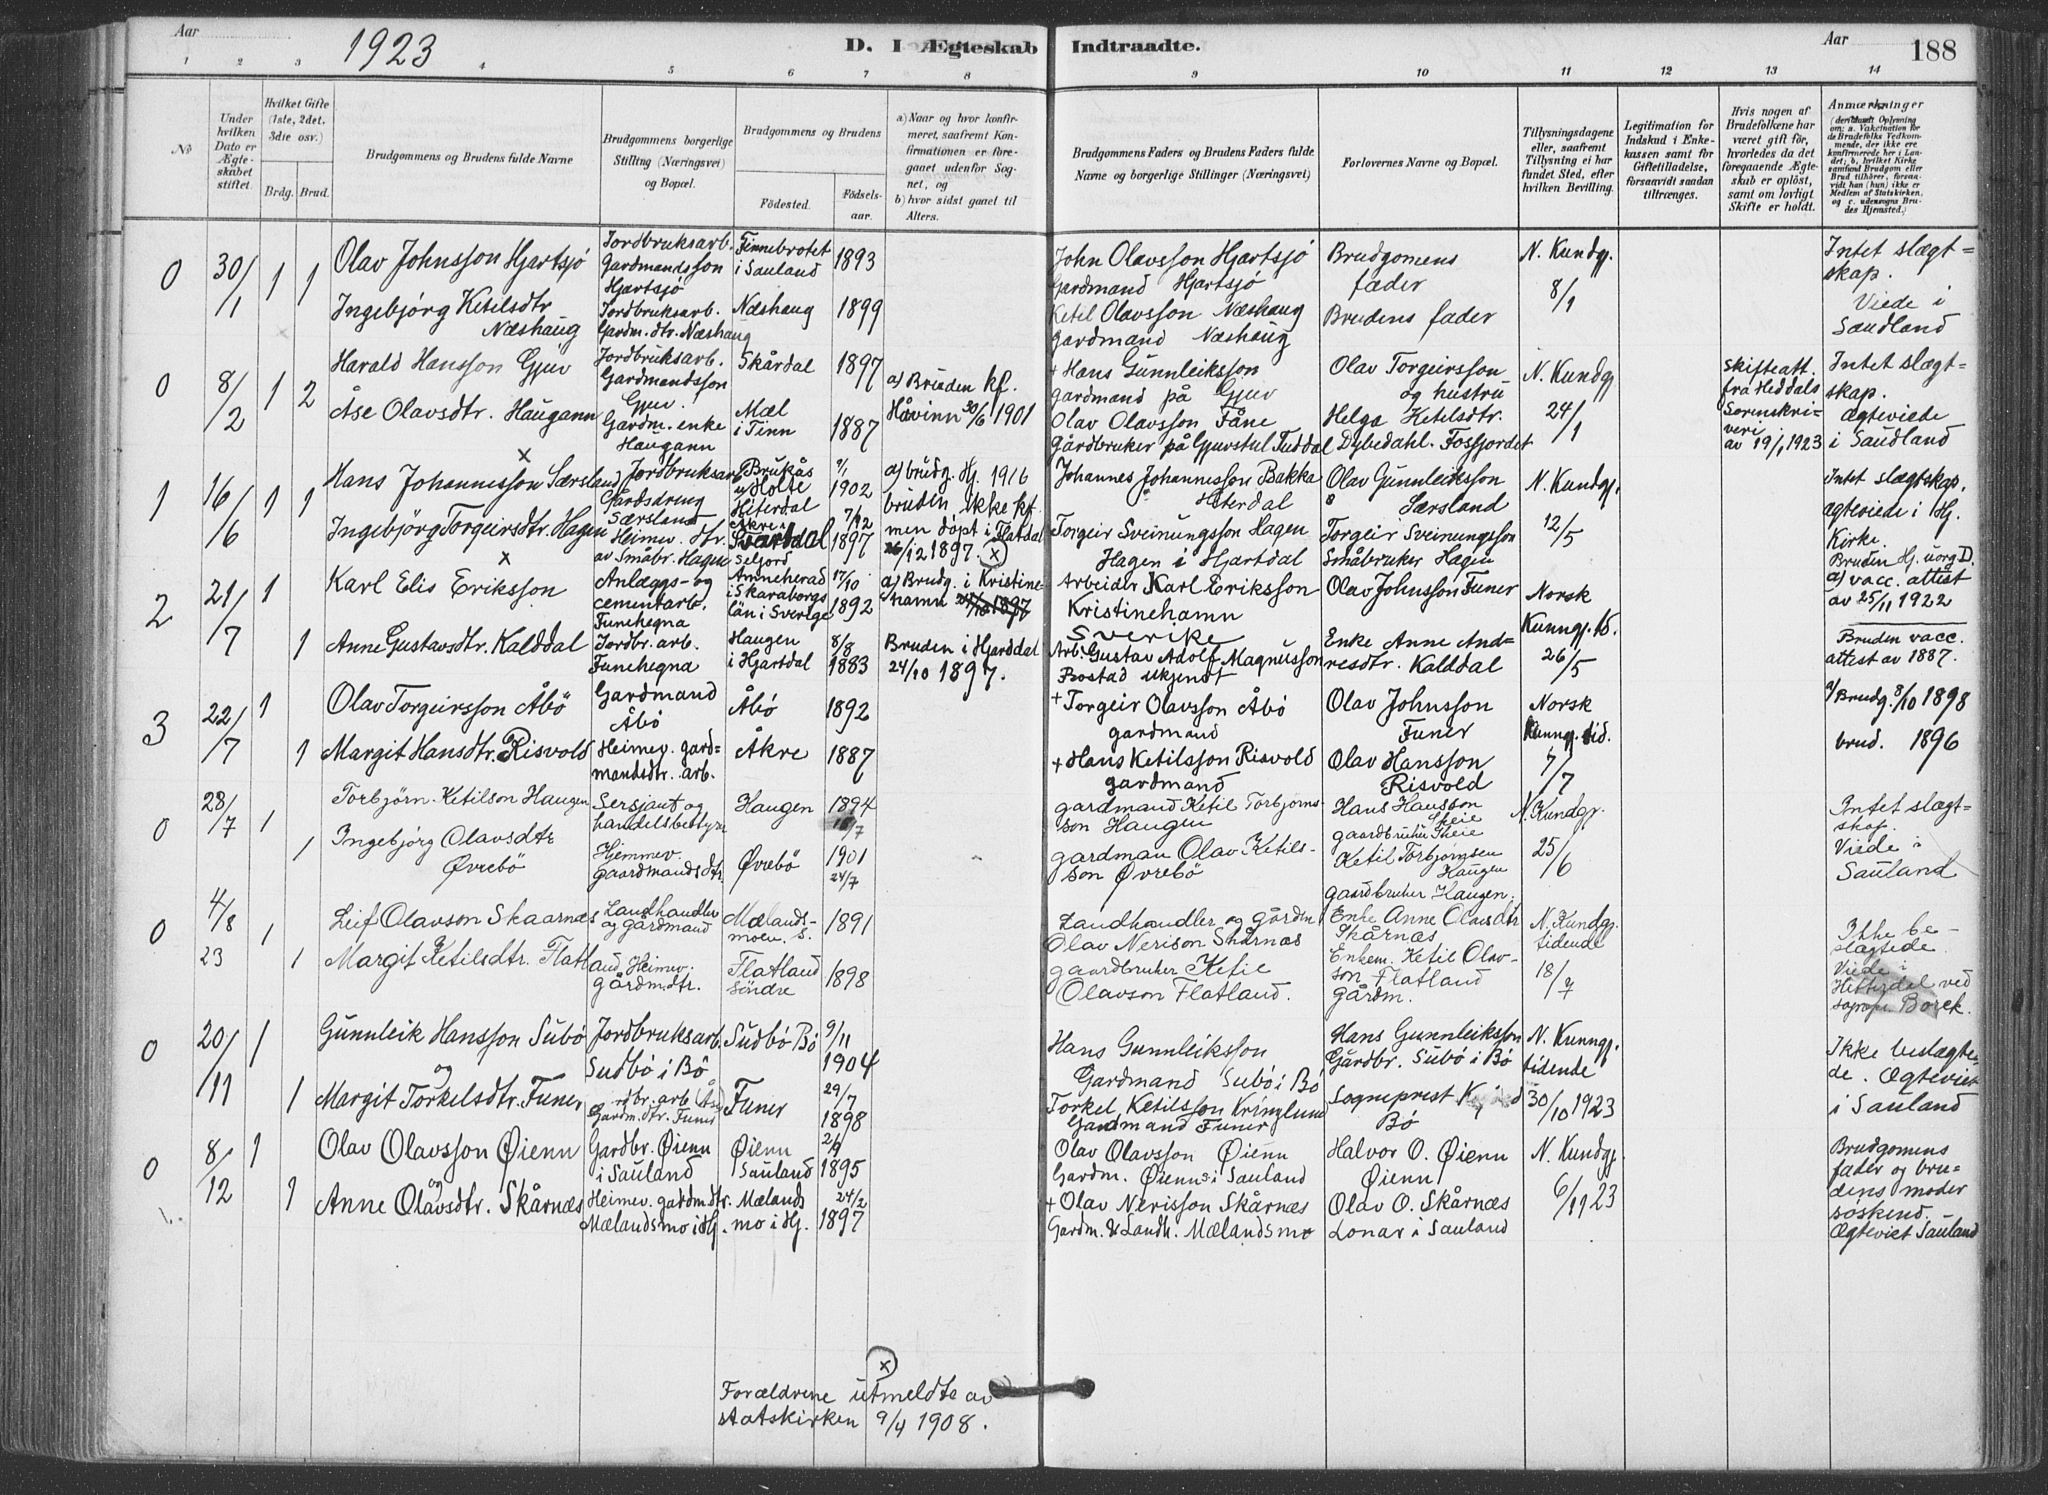 Aar 1923 D. I Ægteskab Indtraadte. Aar 188
1 2 3 4 5 6 7 8 9 10 11 12 13 14
No
Under hvilken Dato er Ægteskabet stiftet.
Hvilket Gifte (1ste, 2det, 3die osv.)
Brdg. Brud.
Brudgommens og Brudens fulde Navne
Brudgommens borgerlige Stilling (Næringsvei) og Bopæl.
Brudgommens og Brudens
Fødested. Fødselsaar.
a) Naar og hvor konfirmeret, saafremt Konfirmationen er foregaaet udenfor Sognet, og
b) hvor sidst gaaet til Alters.
Brudgommens Faders og Brudens Faders fulde Navne og borgerlige Stillinger (Næringsvei)
Forlovernes Navne og Bopæl.
Tillysningsdagene eller, saafremt Tillysning ei har fundet Sted, efter hvilken Bevilling.
Legitimation for Indskud i Enkekassen samt for Giftetilladelse, forsaavidt saadan tiltrænges.
Hvis nogen af Brudefolkene har været gift før, hvorledes da det foregaaende Ægteskab er opløst, samt om lovligt Skifte er holdt.
Anmærkninger
0 30/1 1 1
Olav Johnsson Hjartsjö
Jordbruksarb. Gardmandsson Hjartsjö
Finnebrotet i Sauland 1893
John Olavsson Hjartsjö
Gardmand Hjartsjö
Brudgomens fader
N. Kundgj. 8/1
Intet slægtskap.
Viede i Saudland
Ingebjörg Ketilsdtr Næshaug
Jordbruksarb. Gardm. dtr. Næshaug
Næshaug 1899
Ketil Olavsson Næshaug
gardmand Næshaug
Brudens fader
0 8/2 1 2
Harald Hansson Gjuv
Jordbruksarb. Gardmandsson Gjuv.
Skårdal 1897
a) Bruden kf. Håvinn 30/6 1901
+ Hans Gunnleiksson
gardmand på Gjuv
Olav Torgeirsson og hustru
N. Kundgj 24/1
Skifteatt. fra Heddals Sorenskriveri av 19/1 1923
Intet slægtskap.
Ægteviede i Saudland
Åse Olavsdtr. Haugann
Gardm. enke Haugann
Mæl i Tinn 1887
Olav Olavsson Fåne
gårdbruker på Gjuvstul Tuddal
Helga Ketilsdtr. Dybedahl. Fosfjordet
1 16/6 1 1
x
Hans Johannesson Særsland
Jordbruksarb Gårdsdreng Særsland
Brukås u/Holte Hiterdal 9/1 1902
a) brudg. Hj. 1916
bruden ikke kf. men döpt i Flatdal 26/12 1897. (x)
Johannes Johannesson Bakka
" Hiterdal
Olav Gunnleiksson
" Særsland
N. Kundgj. 12/5
Intet slægtskap.
ægteviede i Hj. Kirke.
Bruden Hj. uorg D.
Ingebjörg Torgeirsdtr. Hagen
x
Heimev. dtr. av Småbr. Hagen
Åkre i Svartdal Seljord 7/12 1897
Torgeir Sveinungsson Hagen
Hagen i Hjartdal
Torgeir Sveinungsson
Småbruker Hagen
2 21/7 1
Karl Elis Eriksson
Anlægs- og cementarb. Funehegna
Amneherad i Skaraborgs län i Sverige 17/10 1892
a) Brudg. i Kristinehamn
Arbeider Karl Eriksson
Kristinehamn
Sverike
Olav Johnsson Funer
Norsk Kunngj. tb. 26/5
a) vacc. attest av 25/11 1922
1
Anne Gustavsdtr. Kalddal
Jordbr. arb. Funehegna
Haugen i Hjartdal 8/8 1883
Bruden i Hjarddal 24/10 1897.
Arb. Gustav Adolf Magnusson
Bostad ukjendt
Enke Anne Andresdtr. Kalddal
Bruden vacc. attest av 1887.
3 22/7 1
Olav Torgeirsson Åbö
Gardmand Åbö
Åbö 1892
+ Torgeir Olavsson Åbö
gardmand
Olav Johnsson Funer
Norsk Kunngj. tid. 7/7
a/ Brudg. 8/10 1898
1
Margit Hansdtr. Risvold
Heimev. gardmandsdtr. arb.
Åkre 1887
+ Hans Ketilsson Risvold
gardmand
Olav Hansson Risvold
brud. 1896
0 28/7 1
Torbjörn Ketilson Haugen
Sersjant og handelsbestyrer
Haugen 1894
gardmand Ketil Torbjørnsson Haugen
Hans Hansson Skeie
gaardbruker Skeie
N. Kundgj. 25/6
Intet slægtskap.
Viede i Sauland
1
Ingebjörg Olavsdtr Øvrebö
Hjemmev. gaardmandsdtr.
Øvrebö 1901 24/7
gardman Olav Ketilsson Øvrebö
Ketil Torbjørnsen Haugen
gaardbruker Haugen.
0 4/8 23 1
Leif Olavson Skaarnæs
Landhandler og gårdmand
Mælandsmoen S. 1891
Landhandler og gårdm
Olav Nerison Skårnæs
Enke Anne Olavsdtr Skårnæs
N. Kundgj. tidende 18/7
Ikke beslægtede.
Viede i Hitterdal ved sognepr. Borck.
1
Margit Ketilsdtr. Flatland
Heimev. gårdm.dtr.
Flatland söndre 1898
gaardbruker Ketil
Olavson Flatland.
Enkem. Ketil Olavson Flatland
Gårdm.
0 20/11 1
Gunnleik Hansson Subö
og
Jordbruksarb. Sudbö i Bö
Sudbö Bö 9/11 1904
Hans Gunnleiksson
Gardmand Subö i Bö
Hans Gunnleiksson
Gårdbr. Subö i Bö
N. Kunngj. tidende 30/10 1923
Ikke beslægtede. Ægteviet i Sauland
1
Margit Torkelsdtr. Funer
Gardm. dtr. Funer
Funer 29/7 1898
Torkel Ketilsson Kringlund
Gardmand Funer
Sogneprest
Bö
0 8/12 1
Olav Olavsson Øienn
og
Gardbr. Øienn i Sauland
Øienn Sauland 2/9 1895
Olav Olavsson Øienn
Gardm. Øienn i Sauland
Halvor O. Øienn
Øienn
N. Kundgj. 6/11 23
Brudgomens fader og brudens moder söskend.
Ægteviet Sauland
1
Anne Olavsdtr. Skårnæs
Heimev. gardm.dtr. Mælandsmo i Hj.
Mælandsmo i Hj. 24/2 1897
+ Olav Nerisson Skårnæs
Gardm. & Landh. Mælandsmo
Olav O. Skårnæs
Lonar i Sauland
(x)
Forældrene utmeldte av
statskirken 9/4 1908.